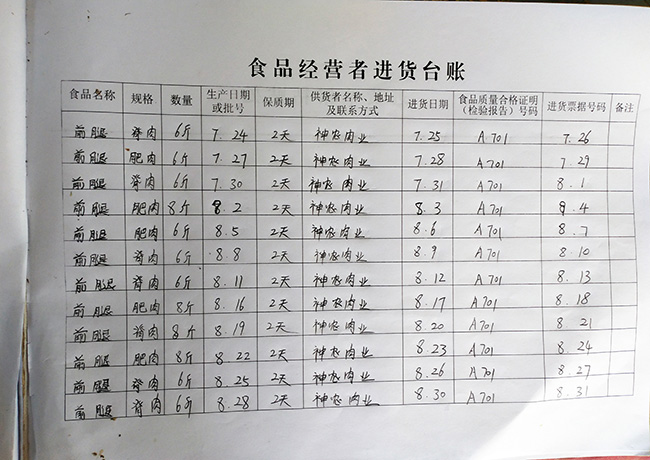 食品经营者进货台账
食品名称 规格 数量 生产日期或批号 保质期 供货者名称、地址及联系方式 进货日期 食品质量合格证明(检验报告)号码 进货票据号码 备注
前腿 脊肉 6斤 7.24 2天 神农肉业 7.25 A701 7.26
前腿 肥肉 6斤 7.27 2天 神农肉业 7.28 A701 7.29
前腿 脊肉 6斤 7.30 2天 神农肉业 7.31 A701 8.1
前腿 肥肉 8斤 8.2 2天 神农肉业 8.3 A701 8.4
前腿 肥肉 6斤 8.5 2天 神农肉业 8.6 A701 8.7
前腿 脊肉 6斤 8.8 2天 神农肉业 8.9 A701 8.10
前腿 脊肉 6斤 8.11 2天 神农肉业 8.12 A701 8.13
前腿 肥肉 8斤 8.16 2天 神农肉业 8.17 A701 8.18
前腿 脊肉 8斤 8.19 2天 神农肉业 8.20 A701 8.21
前腿 肥肉 8斤 8.22 2天 神农肉业 8.23 A701 8.24
前腿 脊肉 6斤 8.25 2天 神农肉业 8.26 A701 8.27
前腿 脊肉 6斤 8.28 2天 神农肉业 8.30 A701 8.31